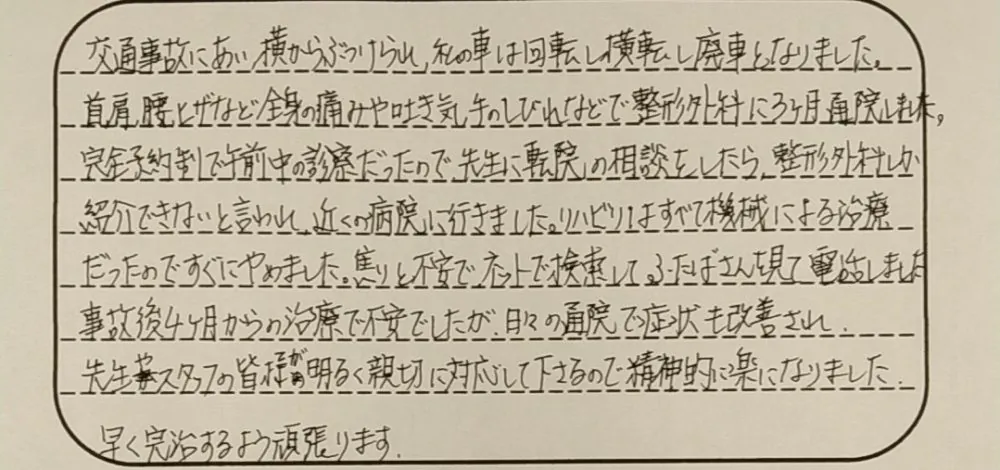 交通事故にあい、横からぶつけられ、私の車は回転し横転し廃車となりました。
首肩、腰ヒザなど全身の痛みや吐き気、手のしびれなどで整形外科に3ヶ月通院しました。
完全予約制で午前中の診察だったので先生に転院の相談をしたら、整形外科しか
紹介できないと言われ、近くの病院に行きました。リハビリはすべて機械による治療
だったのですぐにやめました。焦りと不安でネットで検索してふたばさんを見て電話しました
事故後4ヶ月からの治療で不安でしたが、日々の通院で症状も改善され、
先生、スタッフの皆様が明るく親切に対応して下さるので精神的に楽になりました。
早く完治するよう頑張ります。